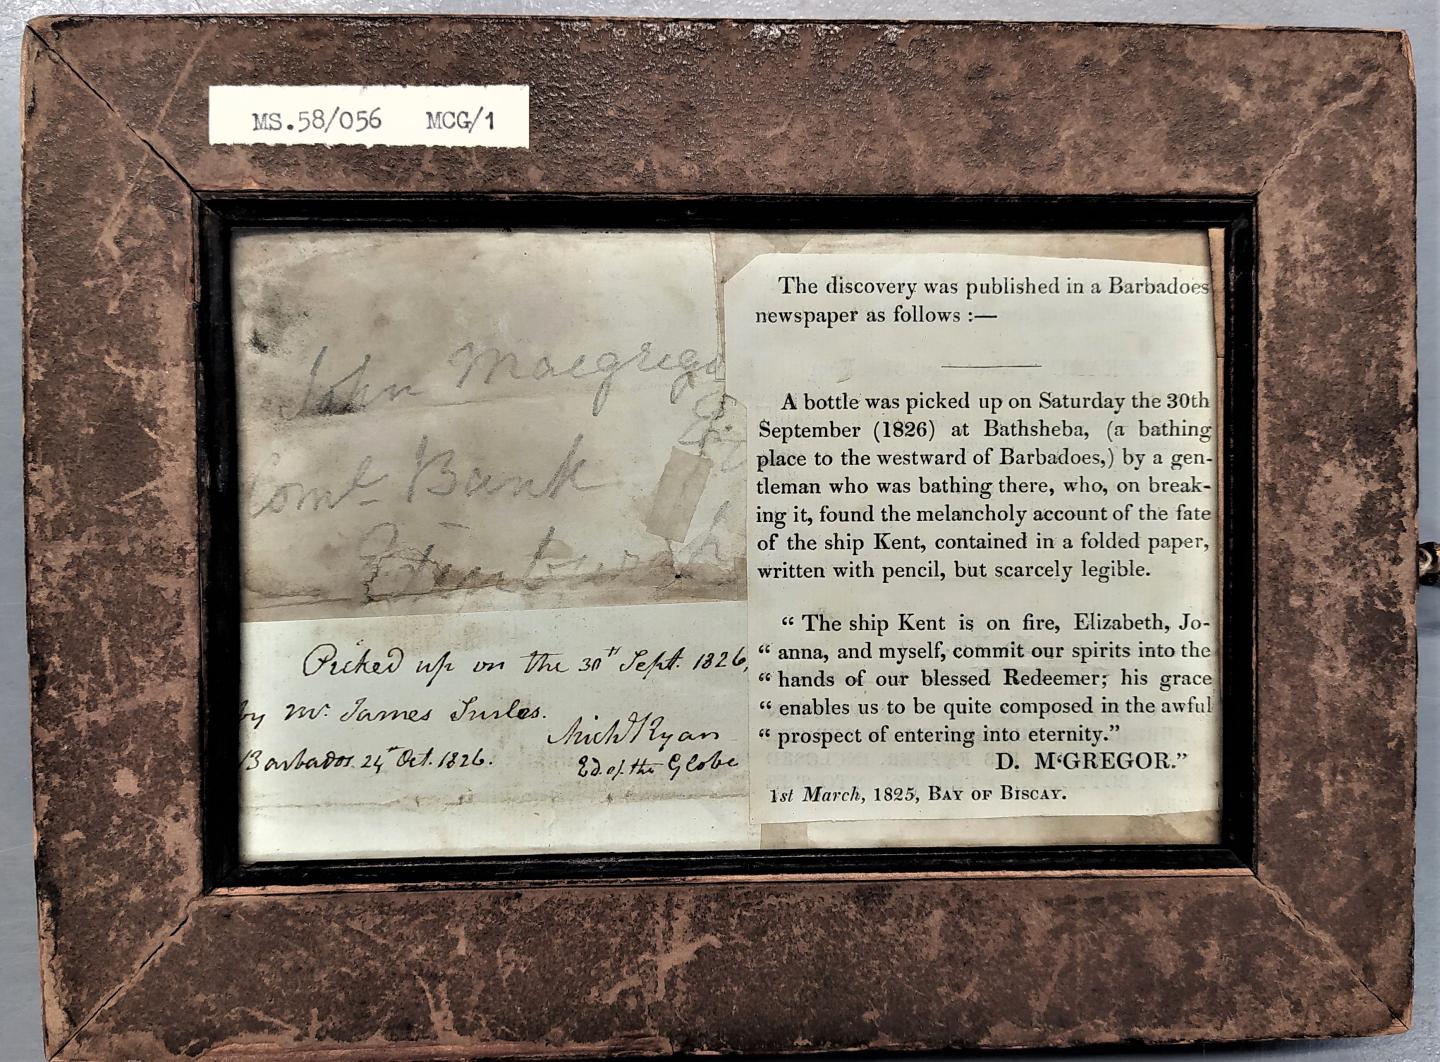 MS.58/056 MCG/1
John Macgrego
Coml Bank
Edinburgh
Picked up on the 30th Sept. 1826,
by Mr. James Surles.
Michl Ryan
Barbados 24th Oct. 1826.
Ed. of the Globe
The discovery was published in a Barbadoes
newspaper as follows :—
A bottle was picked up on Saturday the 30th
September (1826) at Bathsheba, (a bathing
place to the westward of Barbadoes,) by a gen-
tleman who was bathing there, who, on break-
ing it, found the melancholy account of the fate
of the ship Kent, contained in a folded paper,
written with pencil, but scarcely legible.
“ The ship Kent is on fire, Elizabeth, Jo-
“ anna, and myself, commit our spirits into the
“ hands of our blessed Redeemer; his grace
“ enables us to be quite composed in the awful
“ prospect of entering into eternity.”
D. M‘GREGOR.”
1st March, 1825, BAY OF BISCAY.